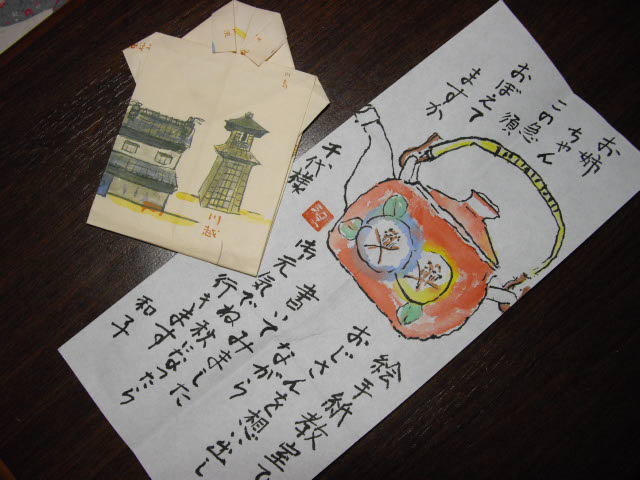 お姉
ちゃん
この急須
おぼえて
ますか
千代様
絵手紙教室で
おじさんを想い出し
ながら
書いて
みました
御元気で
秋になったら
行きます
和子
川越